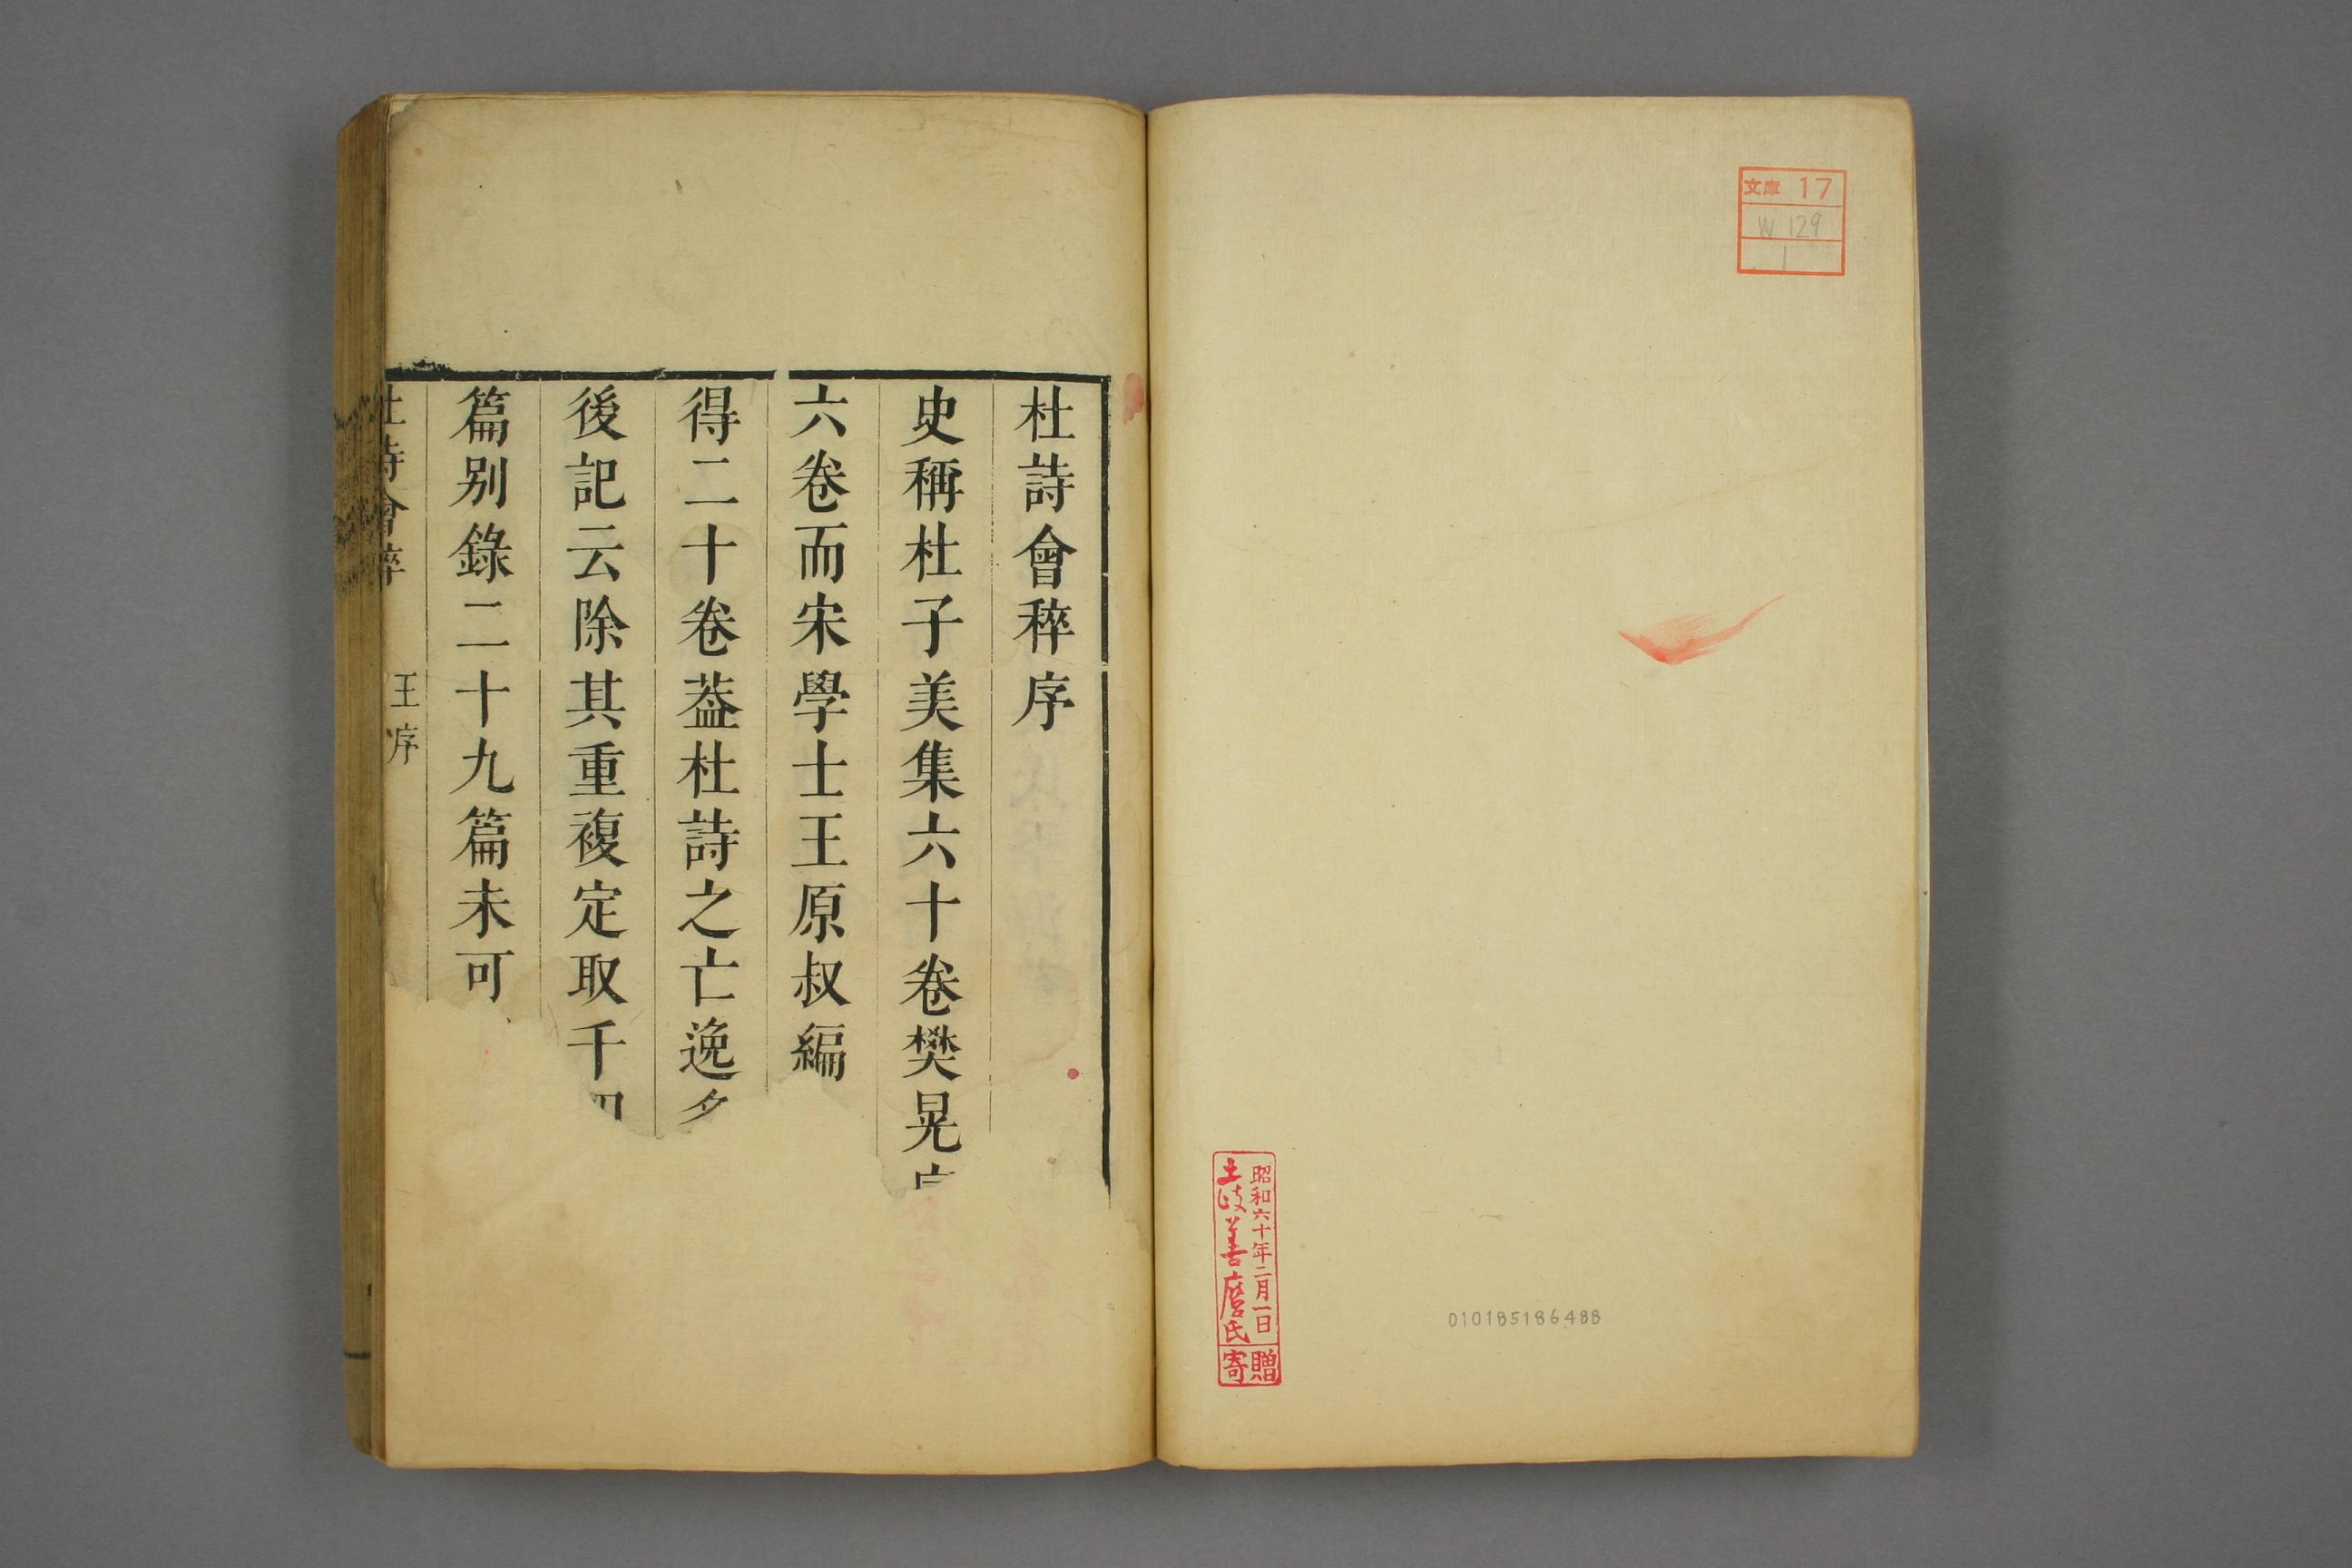 文庫 17
W 129
1
昭和六十年二月一日
土岐善麿氏
寄贈
010185186488
杜詩會稡序
史稱杜子美集六十卷樊晃
六卷而宋學士王原叔編
得二十卷葢杜詩之亡逸
後記云除其重複定取千
篇别錄二十九篇未可
杜詩會稡
王序